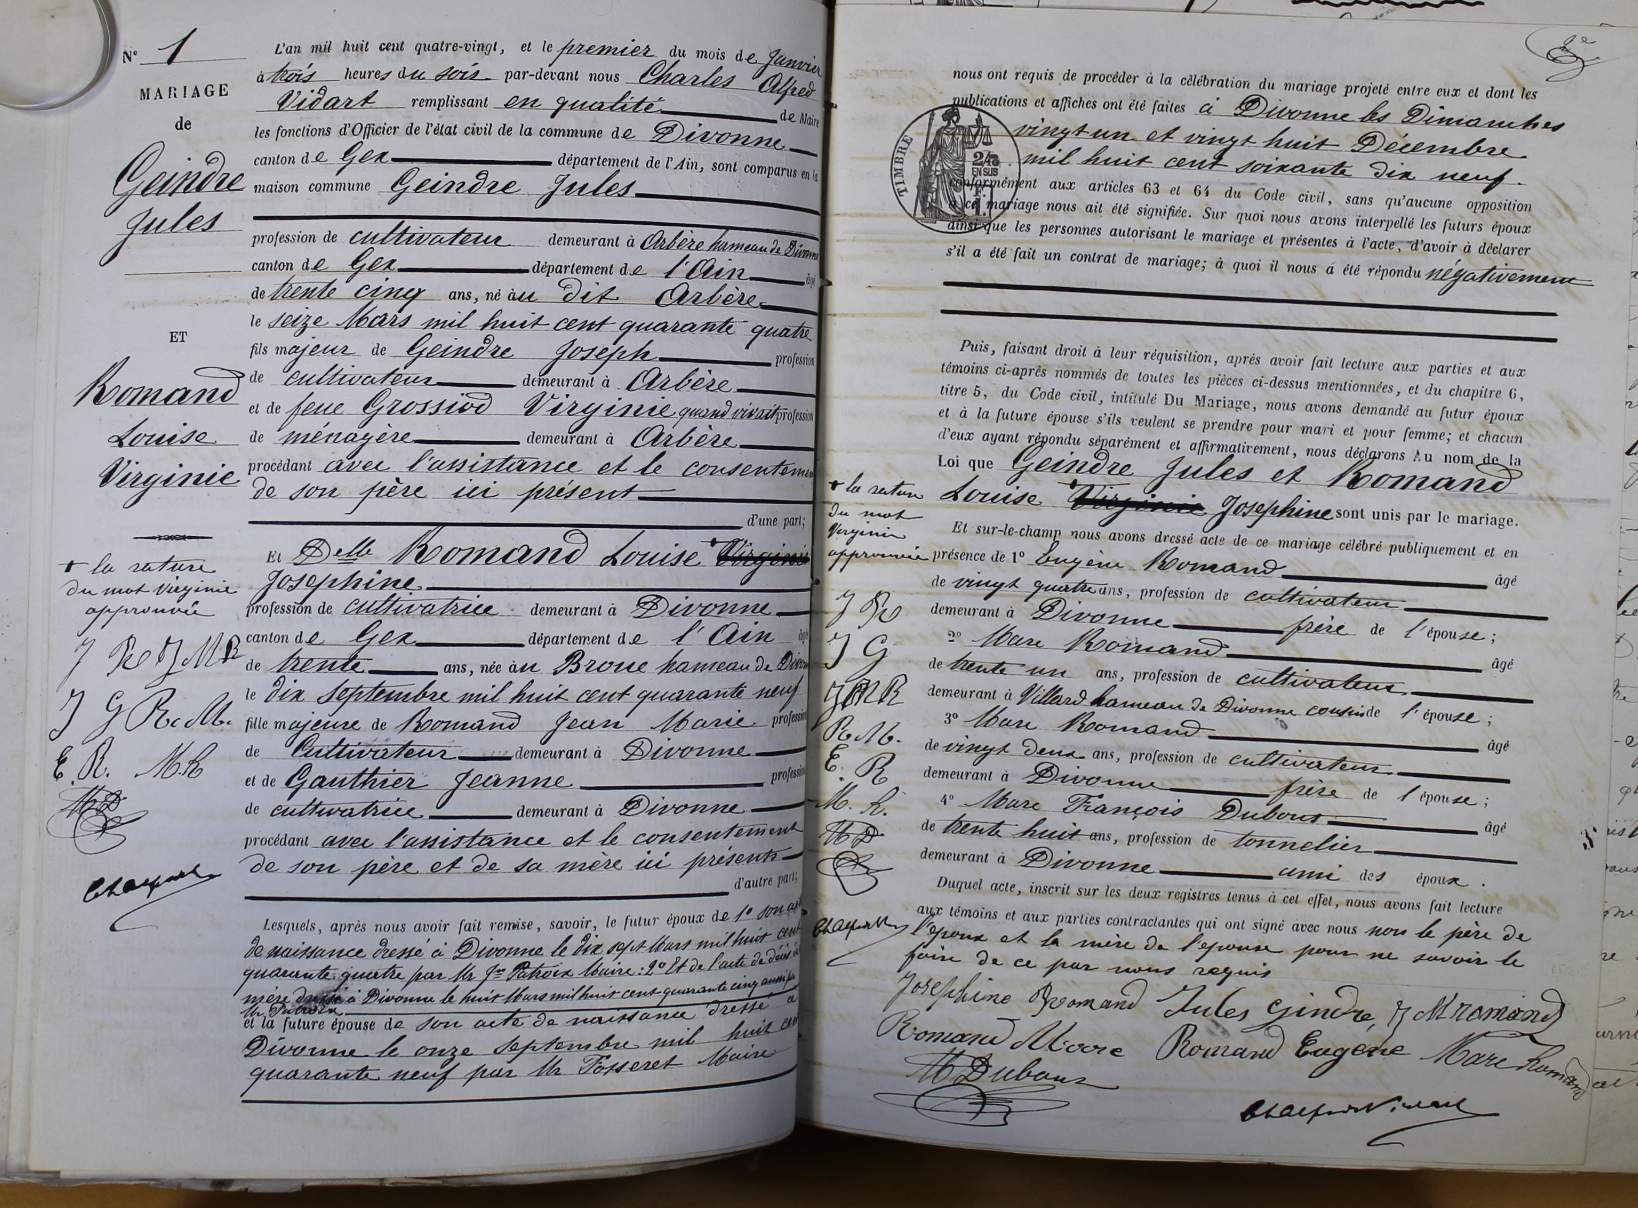 N° 1
MARIAGE
de
Geindre
Jules
ET
Romand
Louise
Virginie
+ la rature
du mot Virginie
approuvée
J R J M R
J G R. M.
E. R. M. R
M D
L'an mil huit cent quatre-vingt, et le premier du mois de Janvier
à trois heures du soir par-devant nous Charles Alfred
Vidart remplissant en qualité de Maire
les fonctions d'Officier de l'état civil de la commune de Divonne
canton de Gex département de l'Ain, sont comparus en la
maison commune Geindre Jules
profession de cultivateur demeurant à Arbère hameau de Divonne
canton de Gex département de l'Ain âgé
de trente cinq ans, né au dit Arbère
le seize Mars mil huit cent quarante quatre
fils majeur de Geindre Joseph profession
de cultivateur demeurant à Arbère
et de feue Grossiod Virginie quand vivait profession
de ménagère demeurant à Arbère
procédant avec l'assistance et le consentement
de son père ici présent
d'une part;
Et Delle Romand Louise + Virginie
Josephine
profession de cultivatrice demeurant à Divonne
canton de Gex département de l'Ain âgé
de trente ans, née au Broue hameau de Divonne
le dix septembre mil huit cent quarante neuf
fille majeure de Romand Jean Marie profession
de Cultivateur demeurant à Divonne
et de Gauthier Jeanne profession
de cultivatrice demeurant à Divonne
procédant avec l'assistance et le consentement
de son père et de sa mère ici présents
d'autre part;
Lesquels, après nous avoir fait remise, savoir, le futur époux de 1° son acte
de naissance dressé à Divonne le dix sept Mars mil huit cent
quarante quatre par Mr Jn Patroix Maire: 2° Et de l'acte de décès de
mère dressé à Divonne le huit Mars mil huit cent quarante cinq aussi par
Mr Patroix
et la future épouse de son acte de naissance dressé à
Divonne le onze Septembre mil huit cent
quarante neuf par Mr Fosseret Maire
2e
nous ont requis de procéder à la célébration du mariage projeté entre eux et dont les
publications et affiches ont été faites à Divonne les Dimanches
vingt un et vingt huit Décembre
mil huit cent soixante dix neuf.
TIMBRE
2/10
EN SUS
conformément aux articles 63 et 64 du Code civil, sans qu'aucune opposition
à ce mariage nous ait été signifiée. Sur quoi nous avons interpellé les futurs époux
ainsi que les personnes autorisant le mariage et présentes à l'acte, d'avoir à déclarer
s'il a été fait un contrat de mariage; à quoi il nous a été répondu négativement
Puis, faisant droit à leur réquisition, après avoir fait lecture aux parties et aux
témoins ci-après nommés de toutes les pièces ci-dessus mentionnées, et du chapitre 6,
titre 5, du Code civil, intitulé Du Mariage, nous avons demandé au futur époux
et à la future épouse s'ils veulent se prendre pour mari et pour femme; et chacun
d'eux ayant répondu séparément et affirmativement, nous déclarons au nom de la
Loi que Geindre Jules et Romand
Louise + Virginie Josephine sont unis par le mariage.
+ la rature
du mot
Virginie
approuvée
J R
J G
J M R
R. M.
E. R
M. R.
M D
Et sur-le-champ nous avons dressé acte de ce mariage célébré publiquement et en
présence de 1° Eugène Romand âgé
de vingt quatre ans, profession de cultivateur
demeurant à Divonne frère de l'épouse;
2° Marc Romand âgé
de trente un ans, profession de cultivateur
demeurant à Villard hameau de Divonne cousin de l'épouse;
3° Marc Romand âgé
de vingt deux ans, profession de cultivateur
demeurant à Divonne frère de l'épouse;
4° Marc François Dubout âgé
de trente huit ans, profession de tonnelier
demeurant à Divonne ami des époux.
Duquel acte, inscrit sur les deux registres tenus à cet effet, nous avons fait lecture
aux témoins et aux parties contractantes qui ont signé avec nous non le père de
l'époux et la mère de l'épouse pour ne savoir le
faire de ce par nous requis
Josephine Romand Jules Gindre J M romand
Romand Marc Romand Eugène Marc Romand
M Dubout